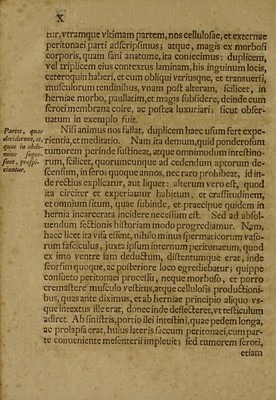 X
tur, vtramque vltimam partem, nos cellulosae, et externae
peritonaei parti adscripsimus; atque, magis ex morbosi
corporis, quam sani anatome, ita coniecimus: duplicem,
vel triplicem eius contextus laminam, his inguinum locis,
ceteroquin haberi, et cum obliqui veriusque, et transuersi,
musculorum tendinibus, vnam post alteram, scilicet, in
herniae morbo, paullatim, et magis subsidere, deinde cum
scroti membrana coire, ac postea luxuriari: sicut obser-
uatum in exemplo fuit.
Partes, quae
deciderunt, et,
quae in abdo-
mine super-
sunt, prospi-
ciuntur.
Nisi animus nos fallat, duplicem haec vsum fert expe-
rientia, et meditatio. Nam ita demum, quid ponderosum
tumorem perinde sustineat, atque ommodulum intestino-
rum, scilicet, quorumcunque ad cedendum aptorum de-
scensum, in seros quoque annos, nec raro prohibeat, id in-
de rectius explicatur, aut liquet: alterum vero est, quod
ita circiter et experiamur habitum, et crassitudinem,
et omnium situm, quae subinde, et praecipue quidem in
hernia incarcerata incidere necessum est. Sed ad absol-
uendum sectionis historiam modo progrediamur. Nam,
haec licet ita visa essent, nihilo minus spermaticorum vaso-
rum fasciculus, iuxta ipsum internum peritonaeum, quod
ex imo ventre iam deductum, distentumque erat, inde
seorsim quoque, ac posteriore loco egrediebatur; quippe
consueto peritonaei processu, neque morboso, et porro
cremastere musculo vestitus, atque cellulosis productioni-
bus, quas ante diximus, et ab herniae principio aliquo vs-
que intextus ille erat, donec inde deflecteret, vt testiculum
adiret. Ab sinistris, portio ilei intestini, quae pedem longa,
ac prolapsa erat, huius lateris saccum peritonaei, cum par-
te conueniente mesenterii impleuit; sed tumorem scroti,
etiam